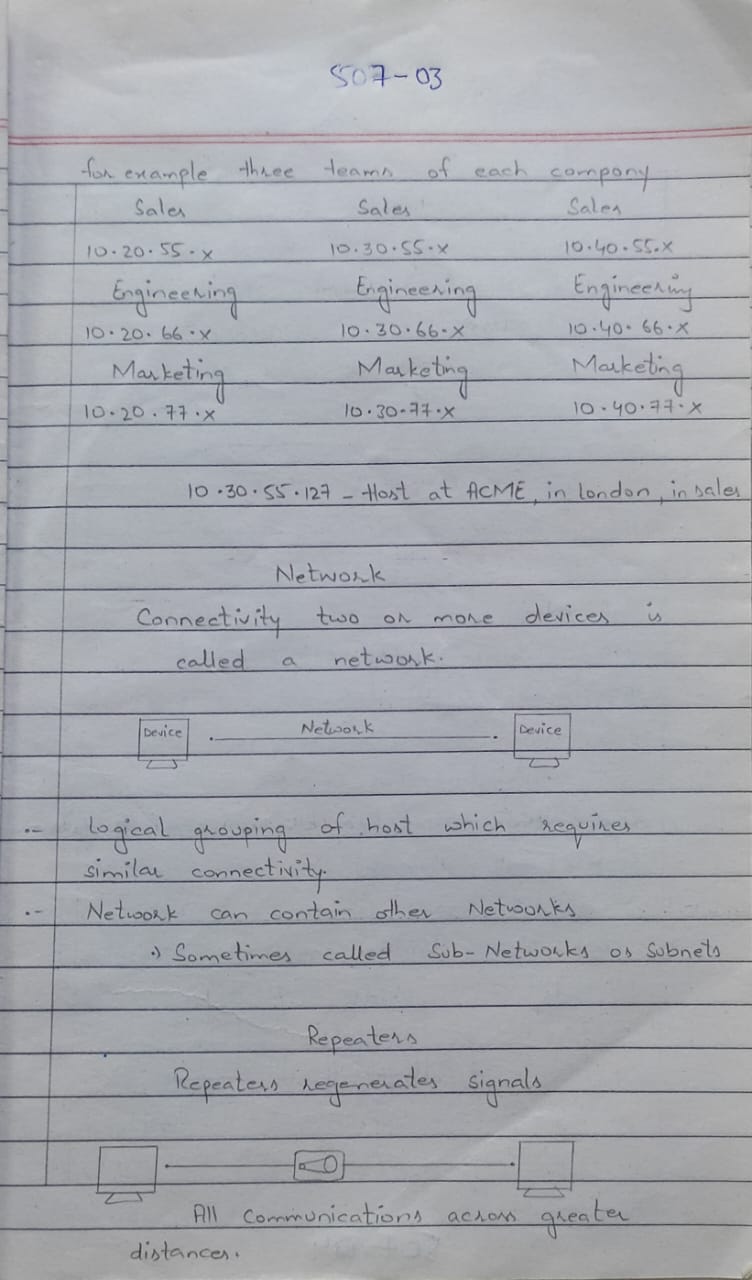 507-03
for example three teams of each company
Sales Sales Sales
10.20.55.x 10.30.55.x 10.40.55.x
Engineering Engineering Engineering
10.20.66.x 10.30.66.x 10.40.66.x
Marketing Marketing Marketing
10.20.77.x 10.30.77.x 10.40.77.x
10.30.55.127 - Host at ACME, in london, in sales
Network
Connectivity two or more devices is
called a network.
Device Network Device
Logical grouping of host which requires
similar connectivity.
Network can contain other Networks
•) Sometimes called Sub-Networks or Subnets
Repeaters
Repeaters regenerates signals
All communications across greater
distances.